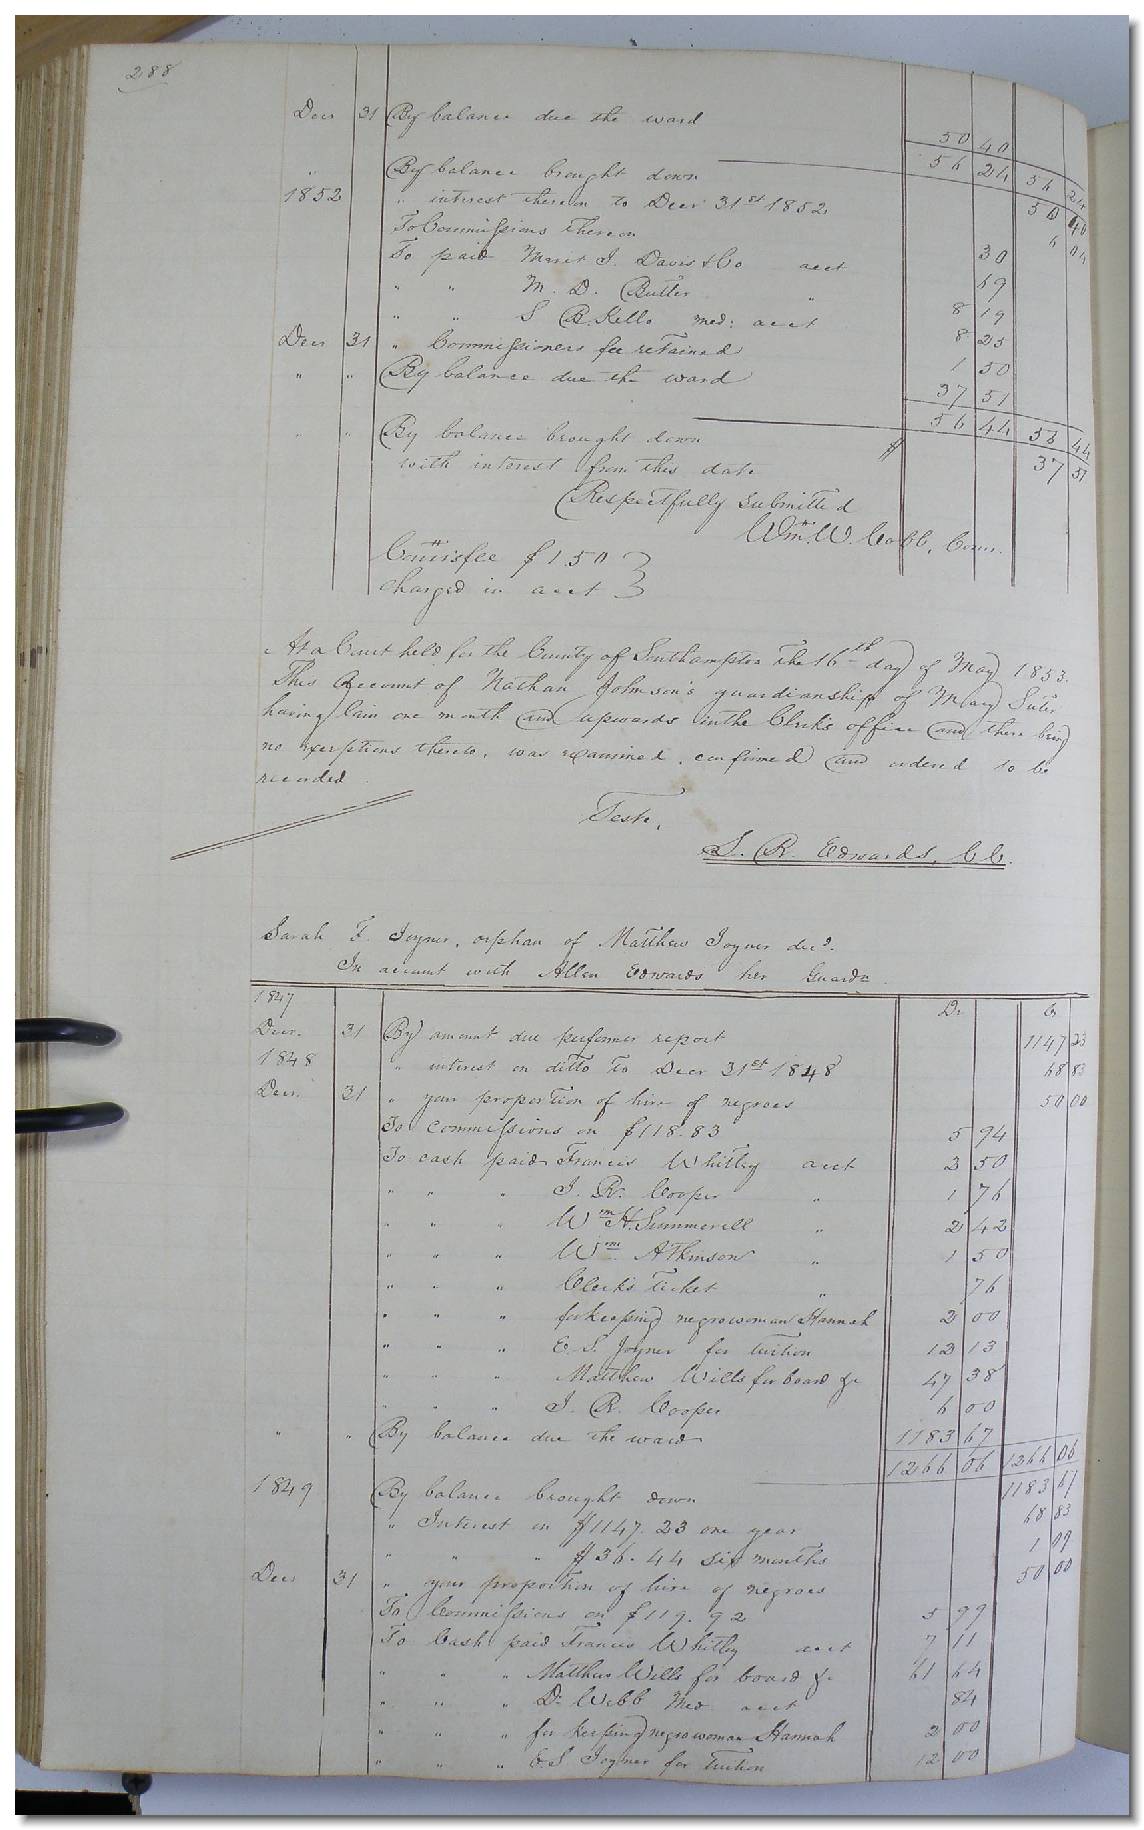 288
Decr 31 By balance due the ward 50 40
56 24 56 24
" By balance brought down 50 40
1852 " interest thereon to Decr 31st 1852 6 04
To Commissions thereon 30
To paid J. Davis & Co acct 69
" " M. D. Butler " 8 19
" " S B. Kello med: acct 8 25
Decr 31 " Commissioners fee retained 1 50
" " By balance due the ward 37 51
56 44 56 44
" " By balance brought down $ 37 51
with interest from this date
Respectfully submitted
Wm. W. Cobb, Comr.
Comrs fee $1.50 }
charged in acct }
At a Court held for the County of Southampton the 16th day of May 1853.
This Account of Nathan Johnson's guardianship of Mary Suter
having lain one month and upwards in the Clerk's office and there being
no exceptions thereto, was examined, confirmed and ordered to be
recorded
Teste,
S. R. Edwards, C.C.
Sarah F. Joyner, orphan of Matthew Joyner decd.
In account with Allen Edwards her Guardn.
1847 Dr Cr
Decr. 31 By amount due per former report 1147 23
1848 " interest on ditto to Decr 31st 1848 68 83
Decr. 31 " your proportion of hire of negroes 50 00
To commissions on $118.83 5 94
To cash paid Francis Whitley acct 2 50
" " " J. R. Cooper " 1 76
" " " Wm H. Summerell " 2 42
" " " Wm Atkinson " 1 50
" " " Clerk's Ticket " 76
" " " for keeping negro woman Hannah 2 00
" " " E. S. Joyner for tuition 12 13
" " " Matthew Wills for board &c 47 38
" " " J. R. Cooper 6 00
" " By balance due the ward 1183 67
1266 06 1266 06
1849 By balance brought down 1183 67
" Interest on $1147.23 one year 68 83
" " " $36.44 six months 1 09
Decr 31 " your proportion of hire of negroes 50 00
To Commissions on $119.92 5 99
To Cash paid Francis Whitley acct 7 11
" " " Matthew Wills for board &c 61 64
" " " Dr Webb Med acct 84
" " " for keeping negro woman Hannah 2 00
" " " E. S Joyner for tuition 12 00